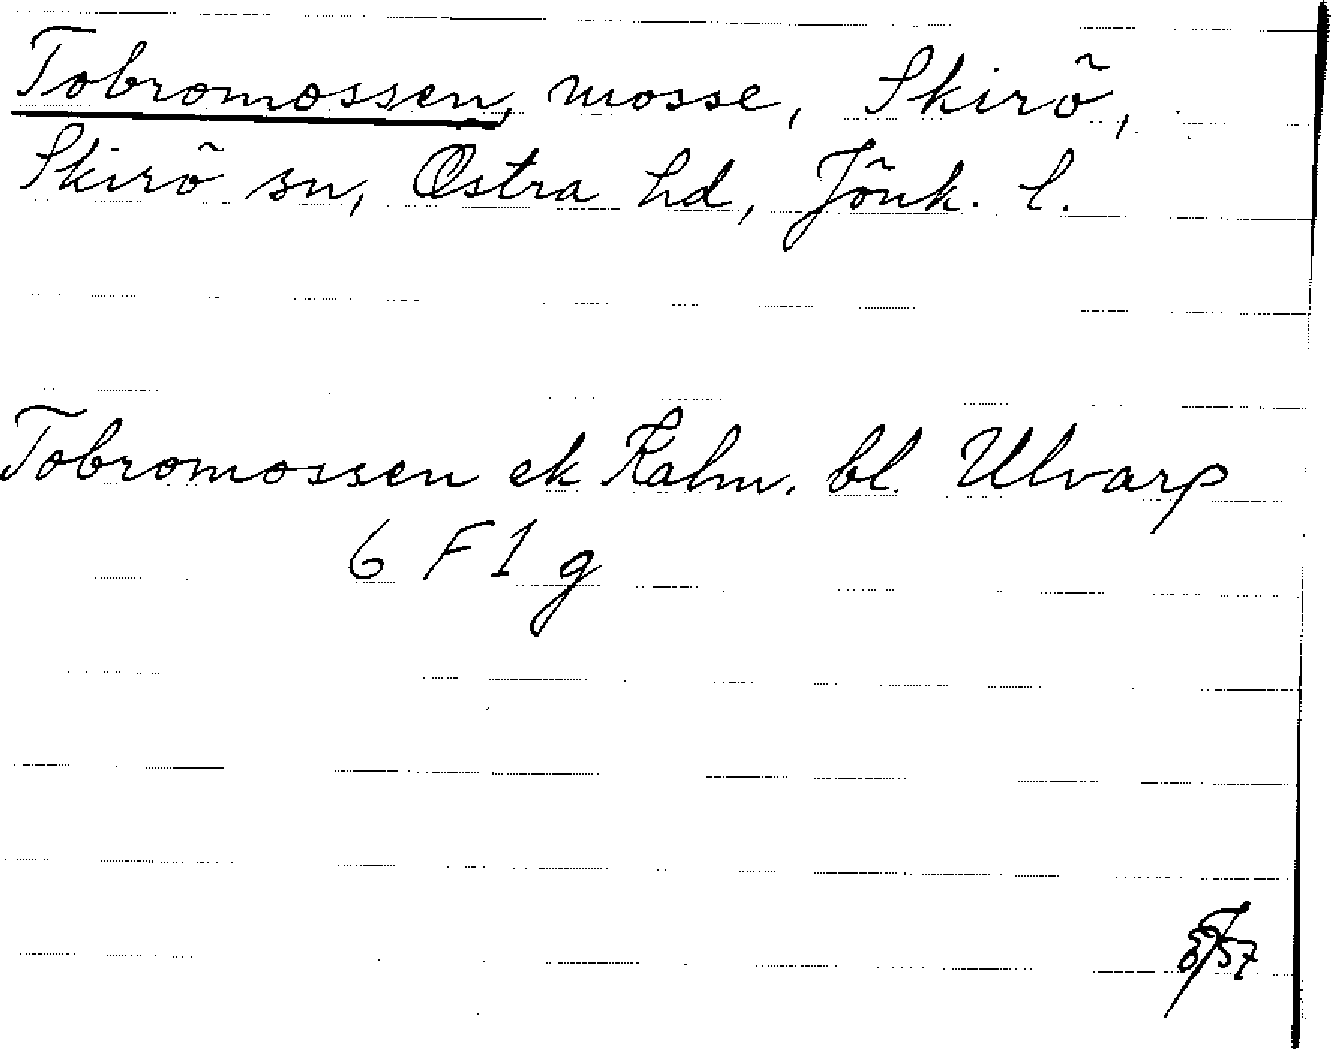 Tobromossen, mosse, Skirö,
Skirö sn, Östra hd, Jönk. l.
Tobromossen ek Kalm. bl. Ulvarp
6 F 1 g